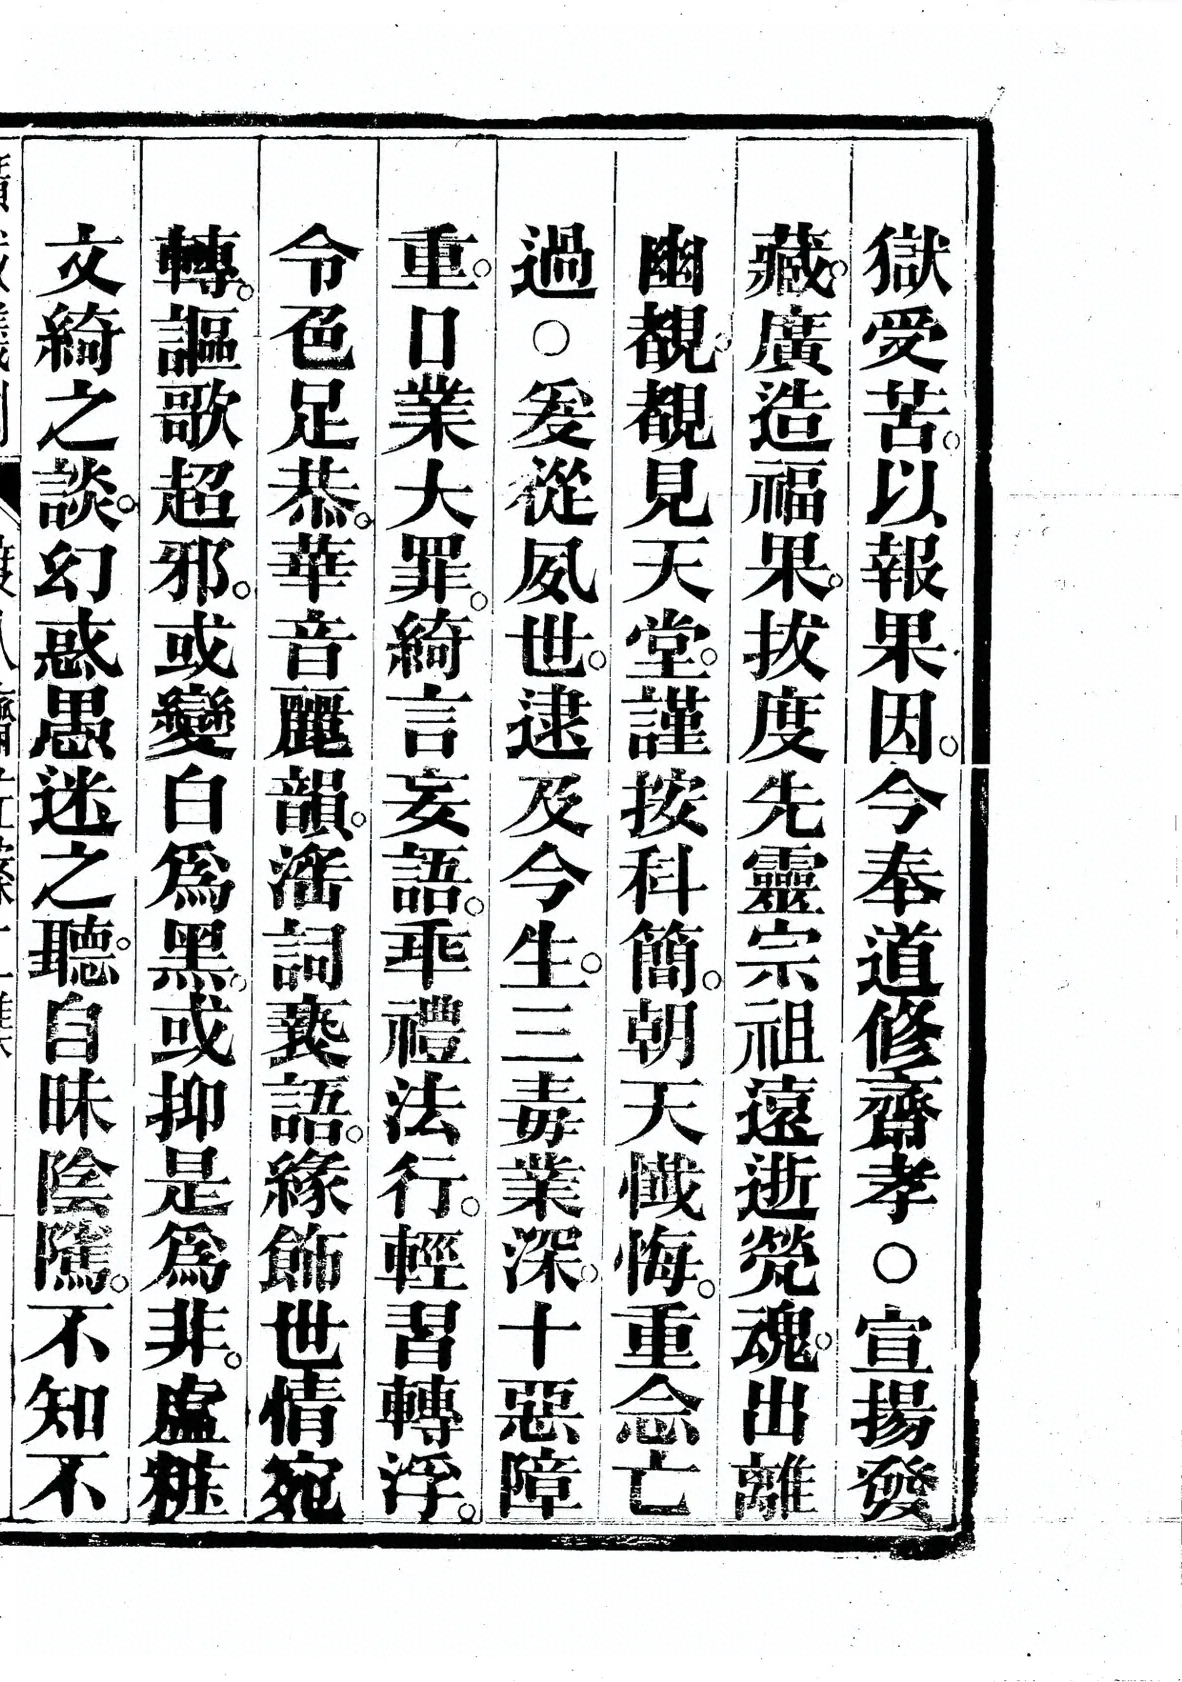 獄受苦。以報果因。今奉道修齋孝○宣揚發
藏。廣造福果。拔度先靈宗祖遠逝焭魂。出離
幽覩。覩見天堂。謹按科簡。朝天懺悔。重念亡
過○爰從夙世。逮及今生。三毒業深。十惡障
重。口業大罪。綺言妄語。乖禮法行。輕習轉浮。
令色足恭。華音麗韻。滛詞褻語。緣飾世情宛
轉。謳歌超邪。或變白爲黑。或抑是爲非。虛粧
文綺之談。幻惑愚迷之聽。自昧陰隲。不知不